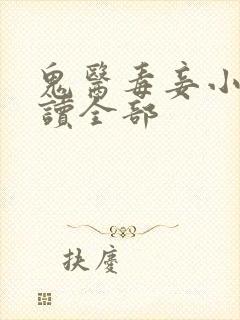 鬼醫毒妾小
讀全部
扶慶